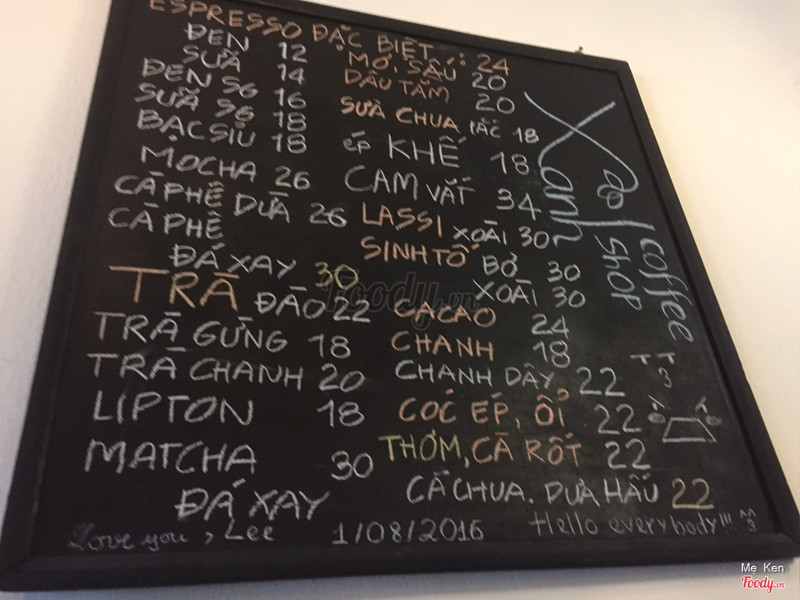 ESPRESSO ĐẶC BIỆT
ĐEN 12
SỮA 14
ĐEN SG 16
SỮA SG 18
BẠC SỈU 18
MOCHA 26
CÀ PHÊ DỪA 26
CÀ PHÊ
ĐÁ XAY 30
TRÀ ĐÀO 22
TRÀ GỪNG 18
TRÀ CHANH 20
LIPTON 18
MATCHA 30
ĐÁ XAY
MƠ, SẤU 24
DÂU TẰM 20
20
SỮA CHUA LẮC 18
ÉP KHẾ 18
CAM VẮT 34
LASSI XOÀI 30
SINH TỐ BƠ 30
XOÀI 30
CACAO 24
CHANH 18
CHANH DÂY 22
CÓC ÉP, ỔI 22
THƠM, CÀ RỐT 22
CÀ CHUA. DƯA HẤU 22
Xanh
coffee
shop
Love you, Lee 1/08/2016 Hello everybody!!! ^^
Foody.vn
Me Ken
Foody.vn